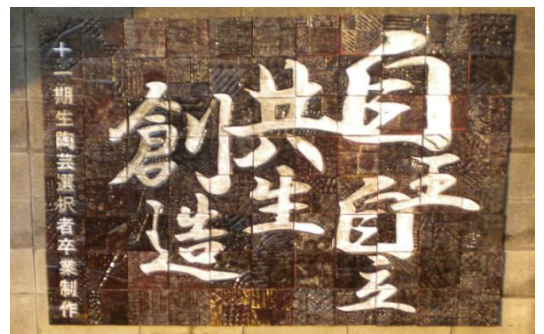 自主自立
共生
創造
十一期生陶芸選択者卒業制作